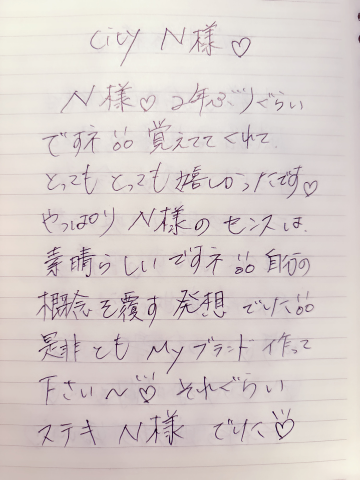 City N様♡
N様♡ 2年ぶりぐらい
ですネ!! 覚えててくれて
とっても とっても 嬉しかったです♡
やっぱり N様の センスは、
素晴らしいですネ!! 自分の
概念を覆す 発想 でした!!
是非とも Myブランド 作って
下さい〜♡ それぐらい
ステキ N様 でした♡